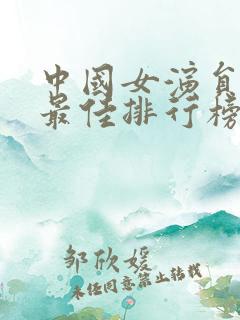 中國女演員
最佳排行榜
邹欣媛
未经同意禁止转载